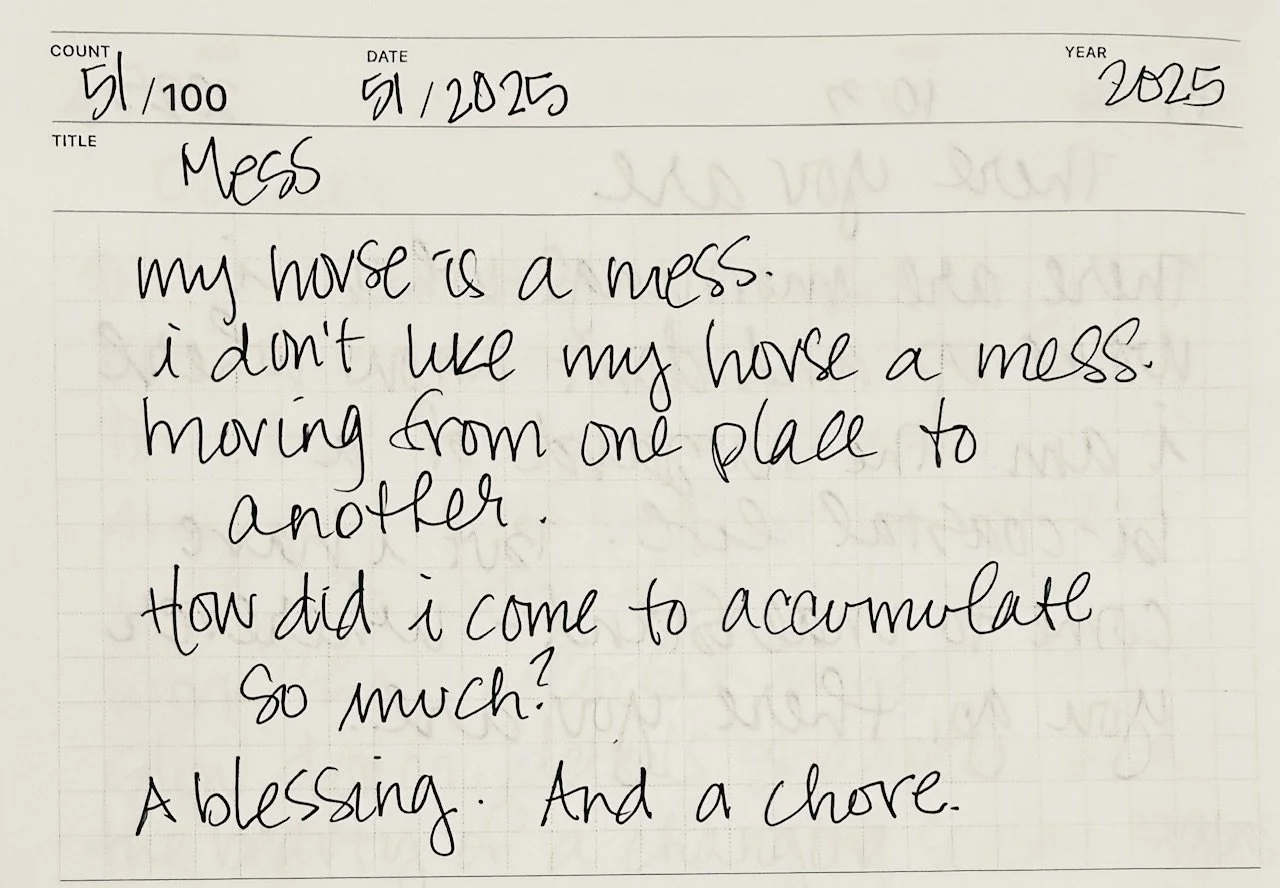 COUNT DATE YEAR
51/100 51/2025 2025
TITLE Mess
my house is a mess.
i don't like my house a mess.
moving from one place to
another.
How did i come to accumulate
so much?
A blessing. And a chore.